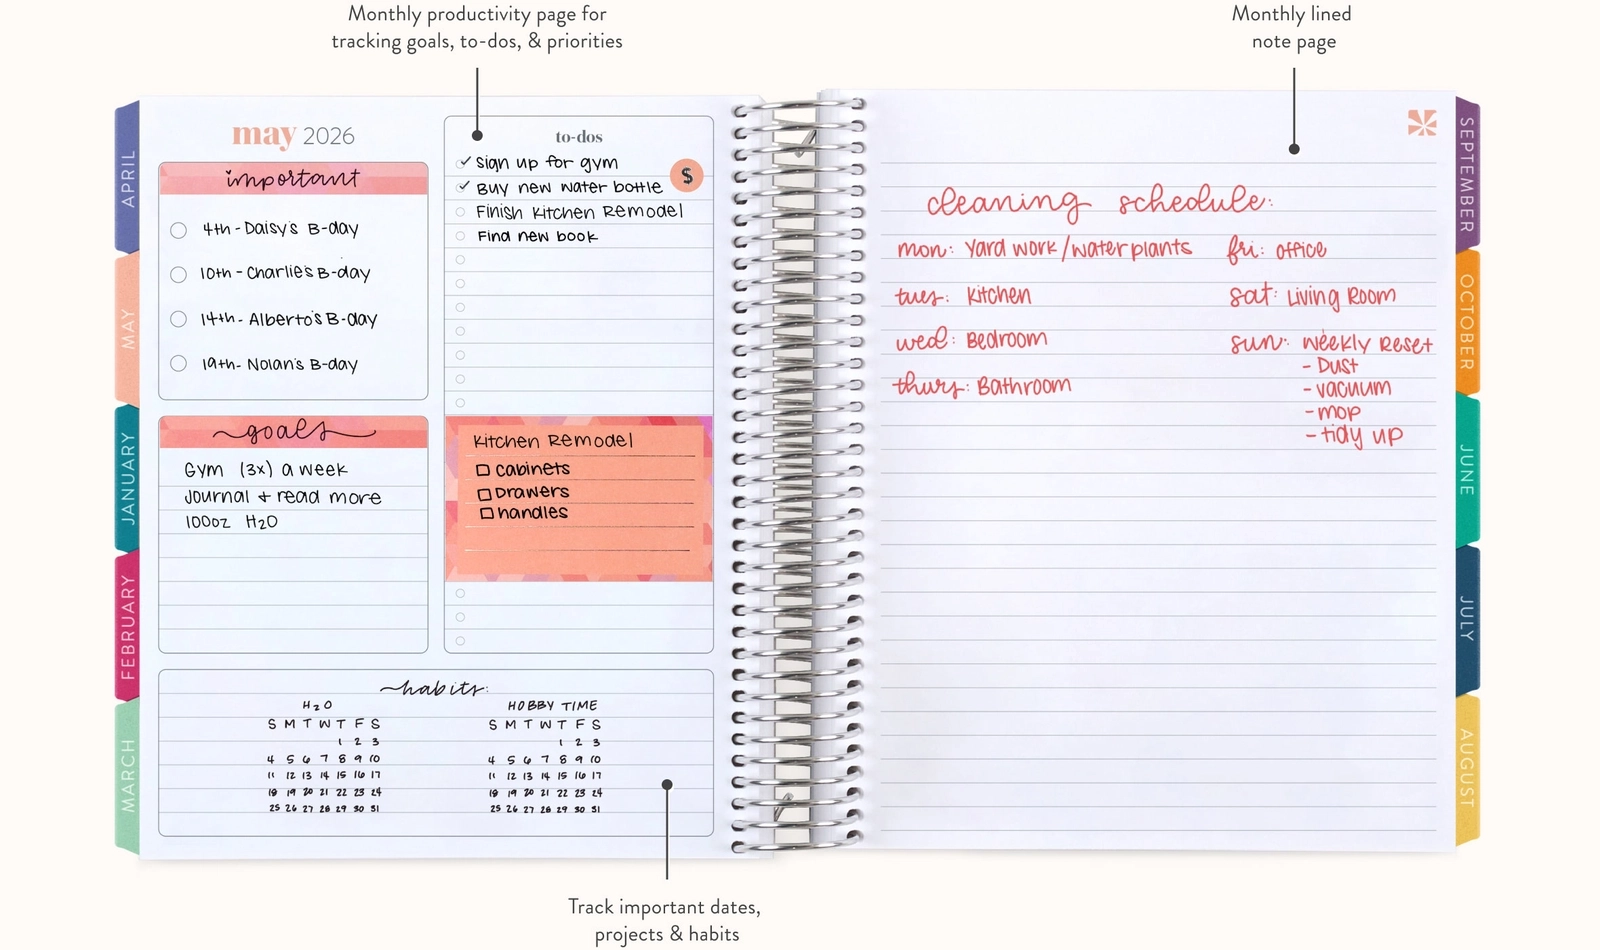 Monthly productivity page for
tracking goals, to-dos, & priorities
Monthly lined
note page
may 2026
important
4th - Daisy's B-day
10th - Charlie's B-day
14th - Alberto's B-day
19th - Nolan's B-day
goals
Gym (3x) a week
Journal + read more
100oz H2O
to-dos
sign up for gym
$
Buy new water bottle
Finish Kitchen Remodel
Find new book
Kitchen Remodel
cabinets
Drawers
handles
habits:
H2O
S M T W T F S
1 2 3
4 5 6 7 8 9 10
11 12 13 14 15 16 17
18 19 20 21 22 23 24
25 26 27 28 29 30 31
HOBBY TIME
S M T W T F S
1 2 3
4 5 6 7 8 9 10
11 12 13 14 15 16 17
18 19 20 21 22 23 24
25 26 27 28 29 30 31
cleaning schedule:
mon: Yard work/water plants
tues: Kitchen
wed: Bedroom
thurs: Bathroom
fri: office
sat: Living Room
sun: Weekly Reset
- Dust
- vacuum
- mop
- tidy up
APRIL
MAY
JANUARY
FEBRUARY
MARCH
SEPTEMBER
OCTOBER
JUNE
JULY
AUGUST
Track important dates,
projects & habits